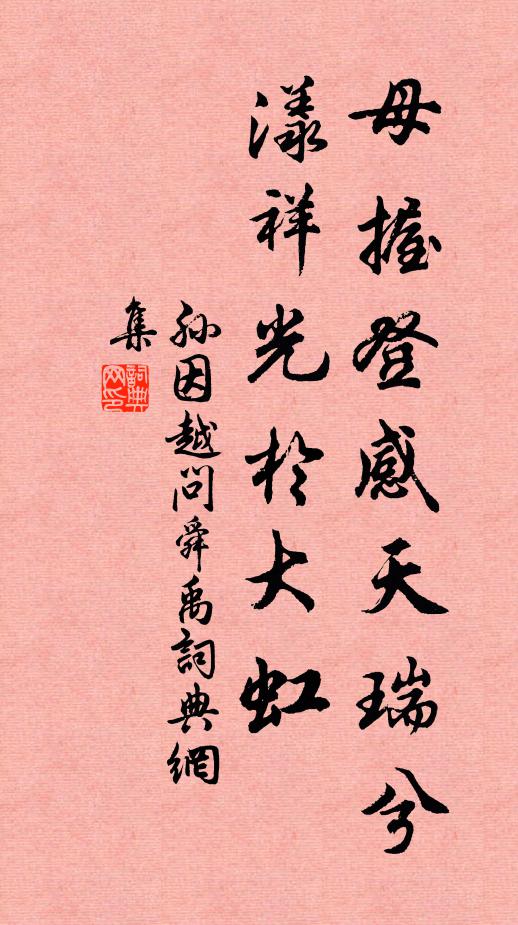 母握登感天瑞兮
漾祥光於大虹
孙因越问舜禹詞典網
集
詞典
网印